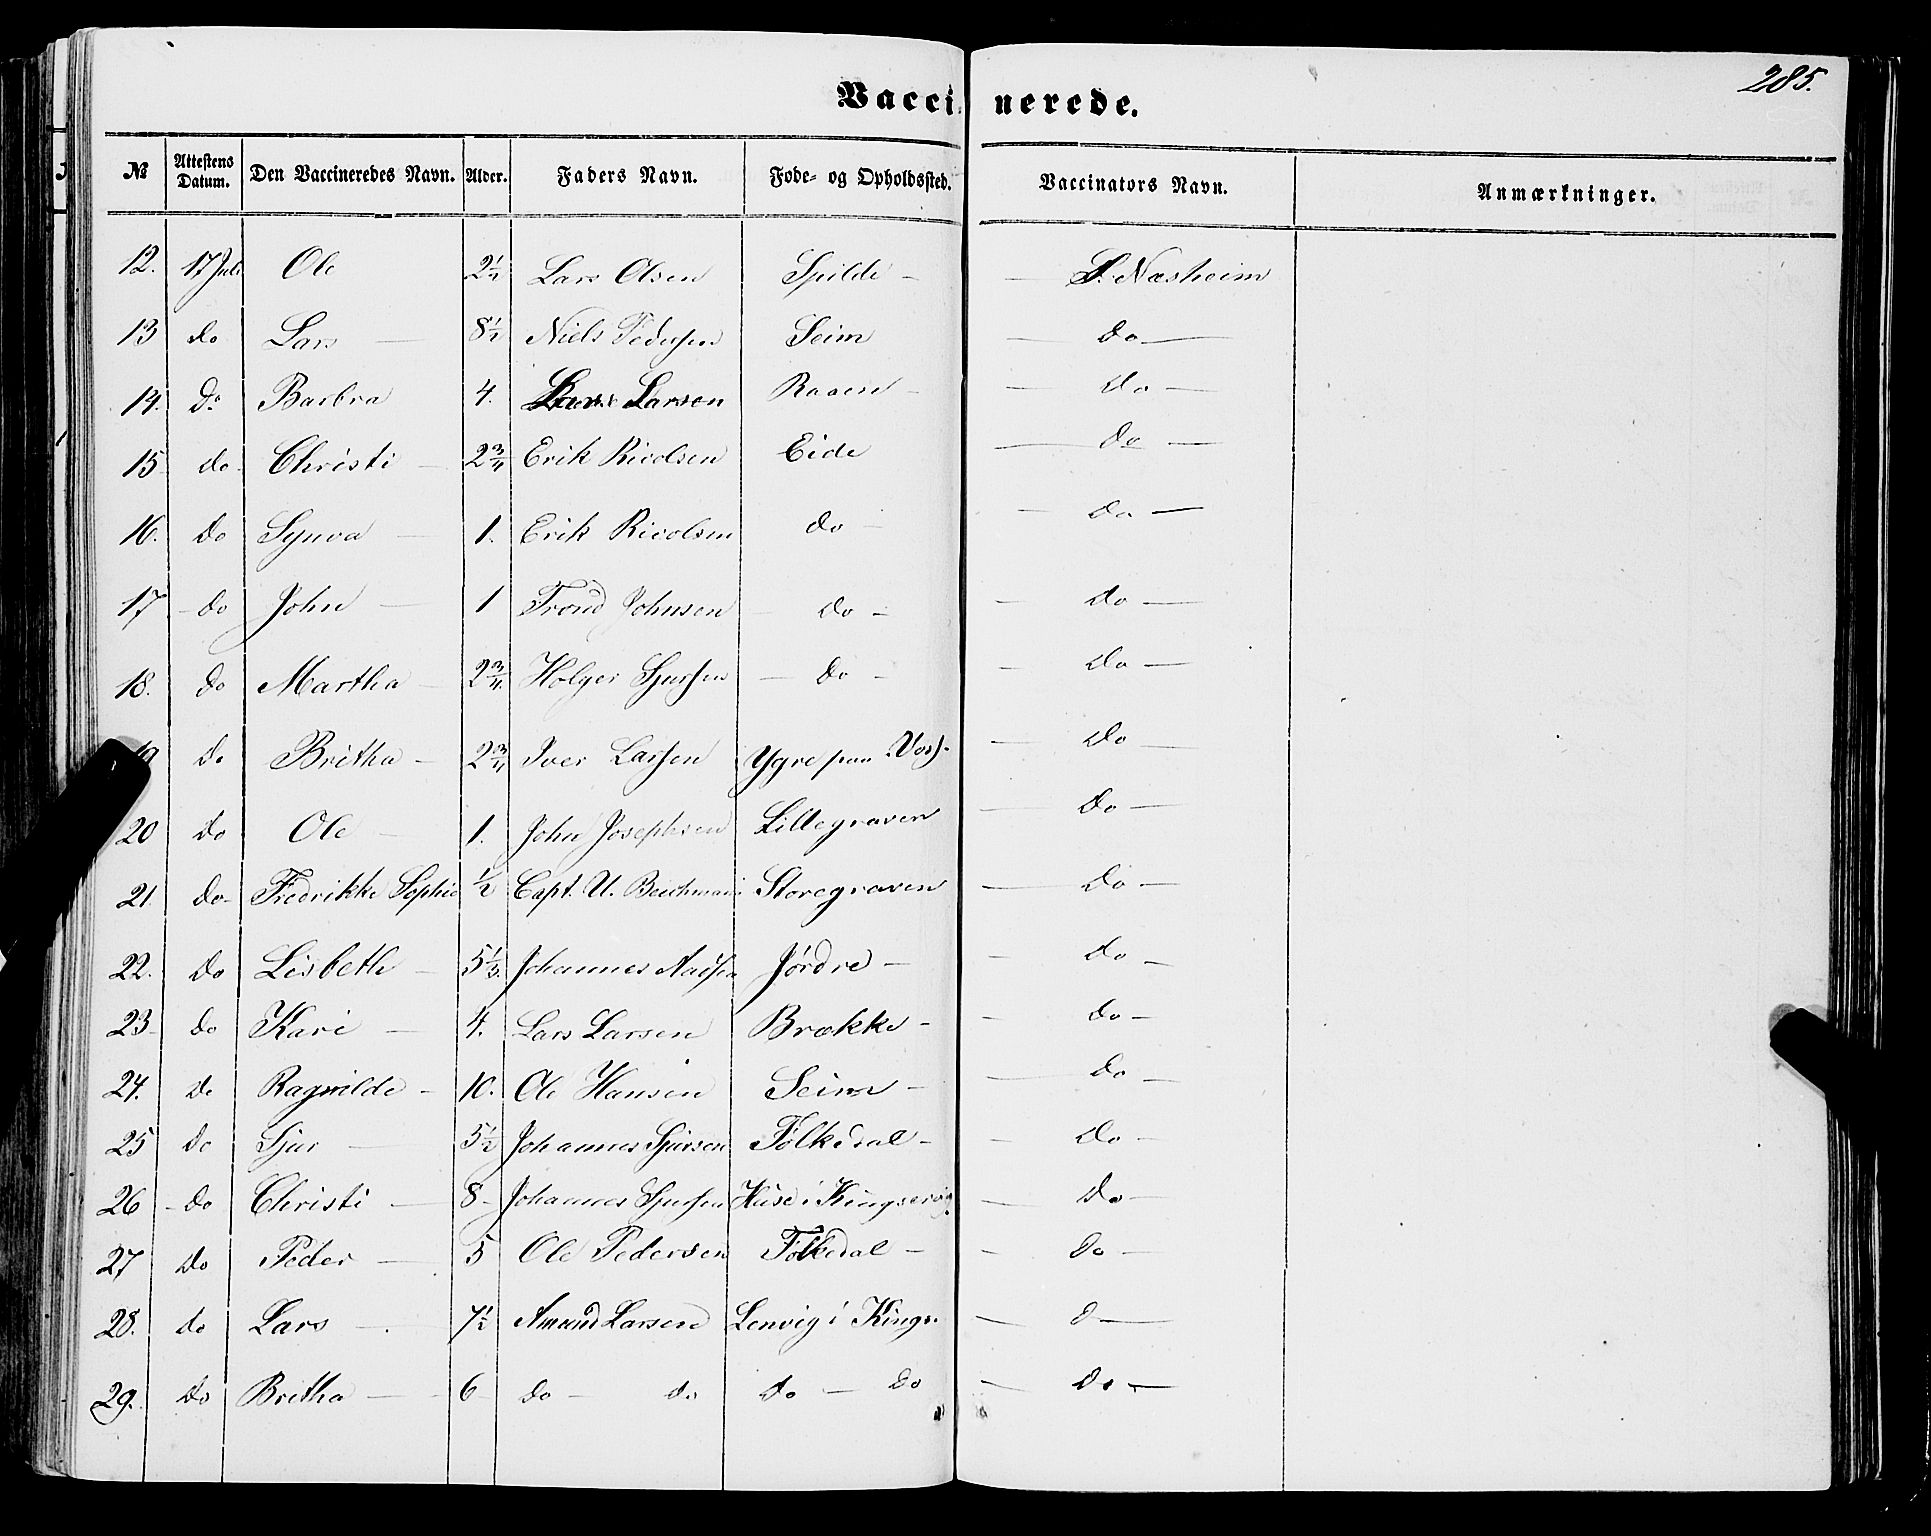 285.
Vaccinerede.
№ Attestens Datum. Den Vaccineredes Navn. Alder. Faders Navn. Føde- og Opholdssted. Vaccinators Navn. Anmærkninger.
12. 17 Juli Ole 2½ Lars Olsen Spilde - - S. Næsheim
13 do Lars - 8½ Niels Pedersen Seim - do -
14. do Barbra 4. Lars Larsen Raaen - - do -
15 do Christi - 2¾ Erik Rivolsen Eide - do -
16. do Synva - 1. Erik Rivolsen do - - do -
17 - do John - 1 Trond Johnsen - do - - do -
18. do Martha - 2¾ Holger Sjursen - do - - do -
19 do Britha - 2¾ Iver Larsen Ygre paa Vos. - do -
20 do Ole - 1. John Josephsen Lillegraven - do -
21 do - Fredrikke Sophie ½ Capt. U. Beichmann Storegraven - do -
22. do Lisbeth - 5⅓. Johannes Aadsen Jørdre - - do -
23 - do Kari - 4. Lars Larsen Brække - - do -
24. do Ragnilde - 10. Ole Hansen Seim - - do -
25 do Sjur - 5½ Johannes Sjursen Folkedal - - do -
26 - do Christi - 8 - Johannes Sjursen Huse i Kingservig - do -
27 do Peder - 5 Ole Pedersen Folkedal - - do -
28. do Lars - 7½ Amund Larsen Lenvig i Kings. - d -
29. do Britha - 6 do - do do - do - do -